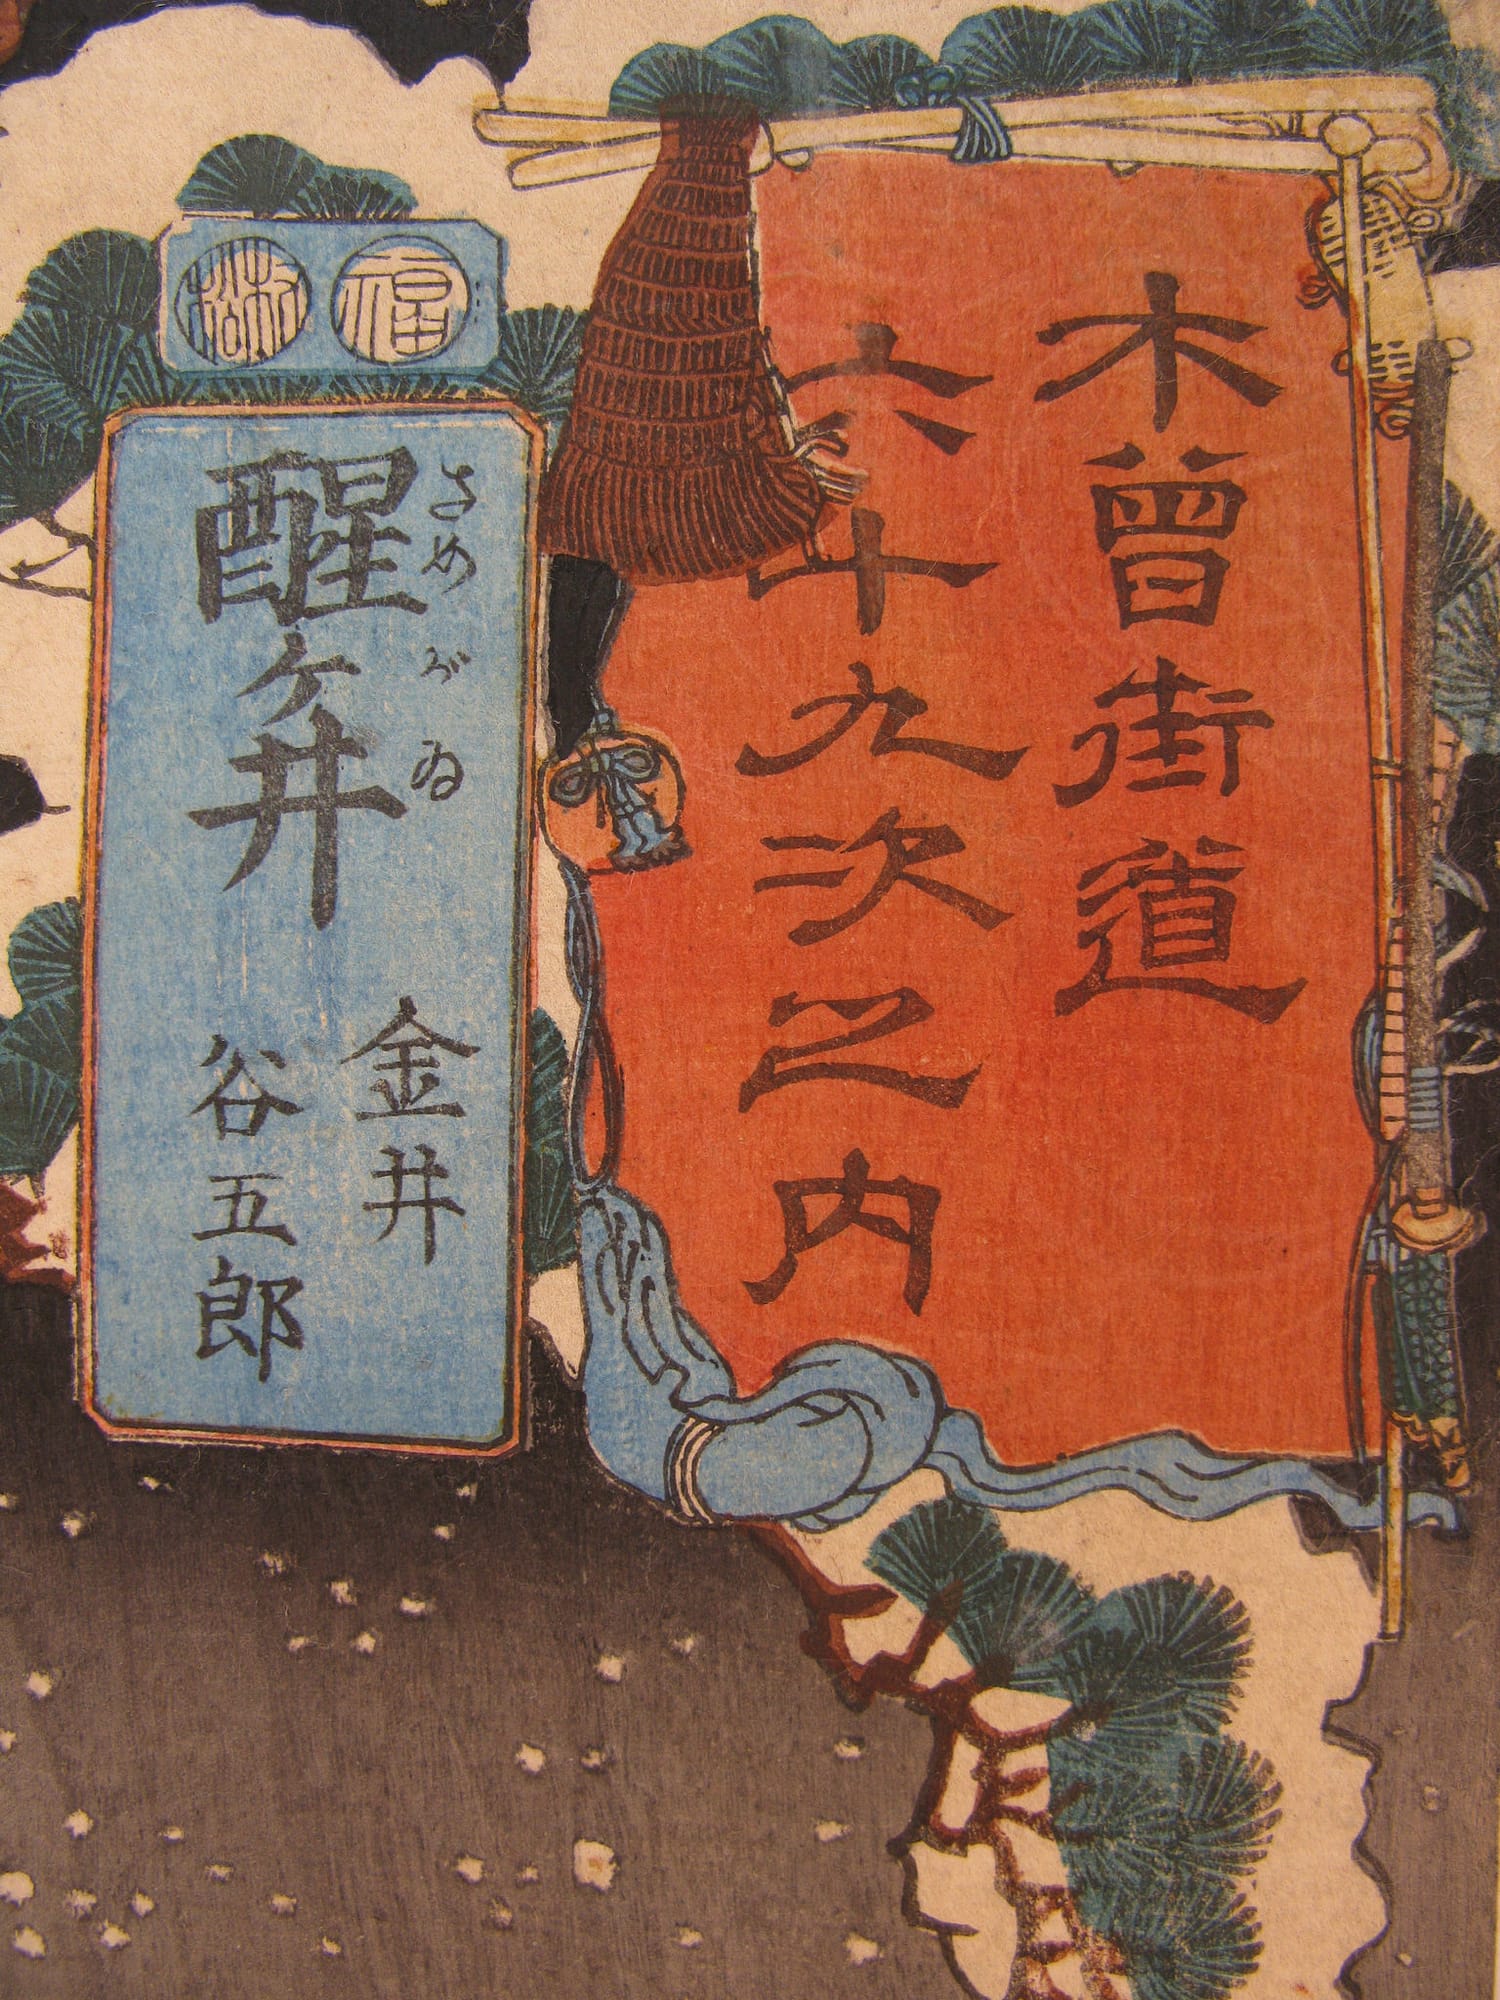 木曽街道
六十九次之内
福
醒ヶ井
さめがゐ
金井
谷五郎